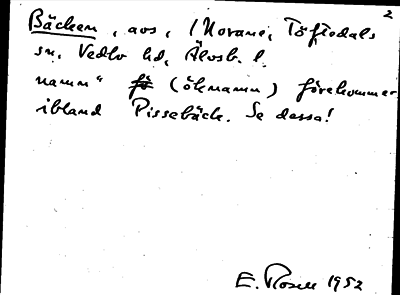 2
Bäcken, avs, (Norane, Töftedals
sn, Vedbo hd, Älvsb. l.
namn" få (öknamn) förekommer
ibland Pissebäck. Se dessa!
E. Rosell 1952